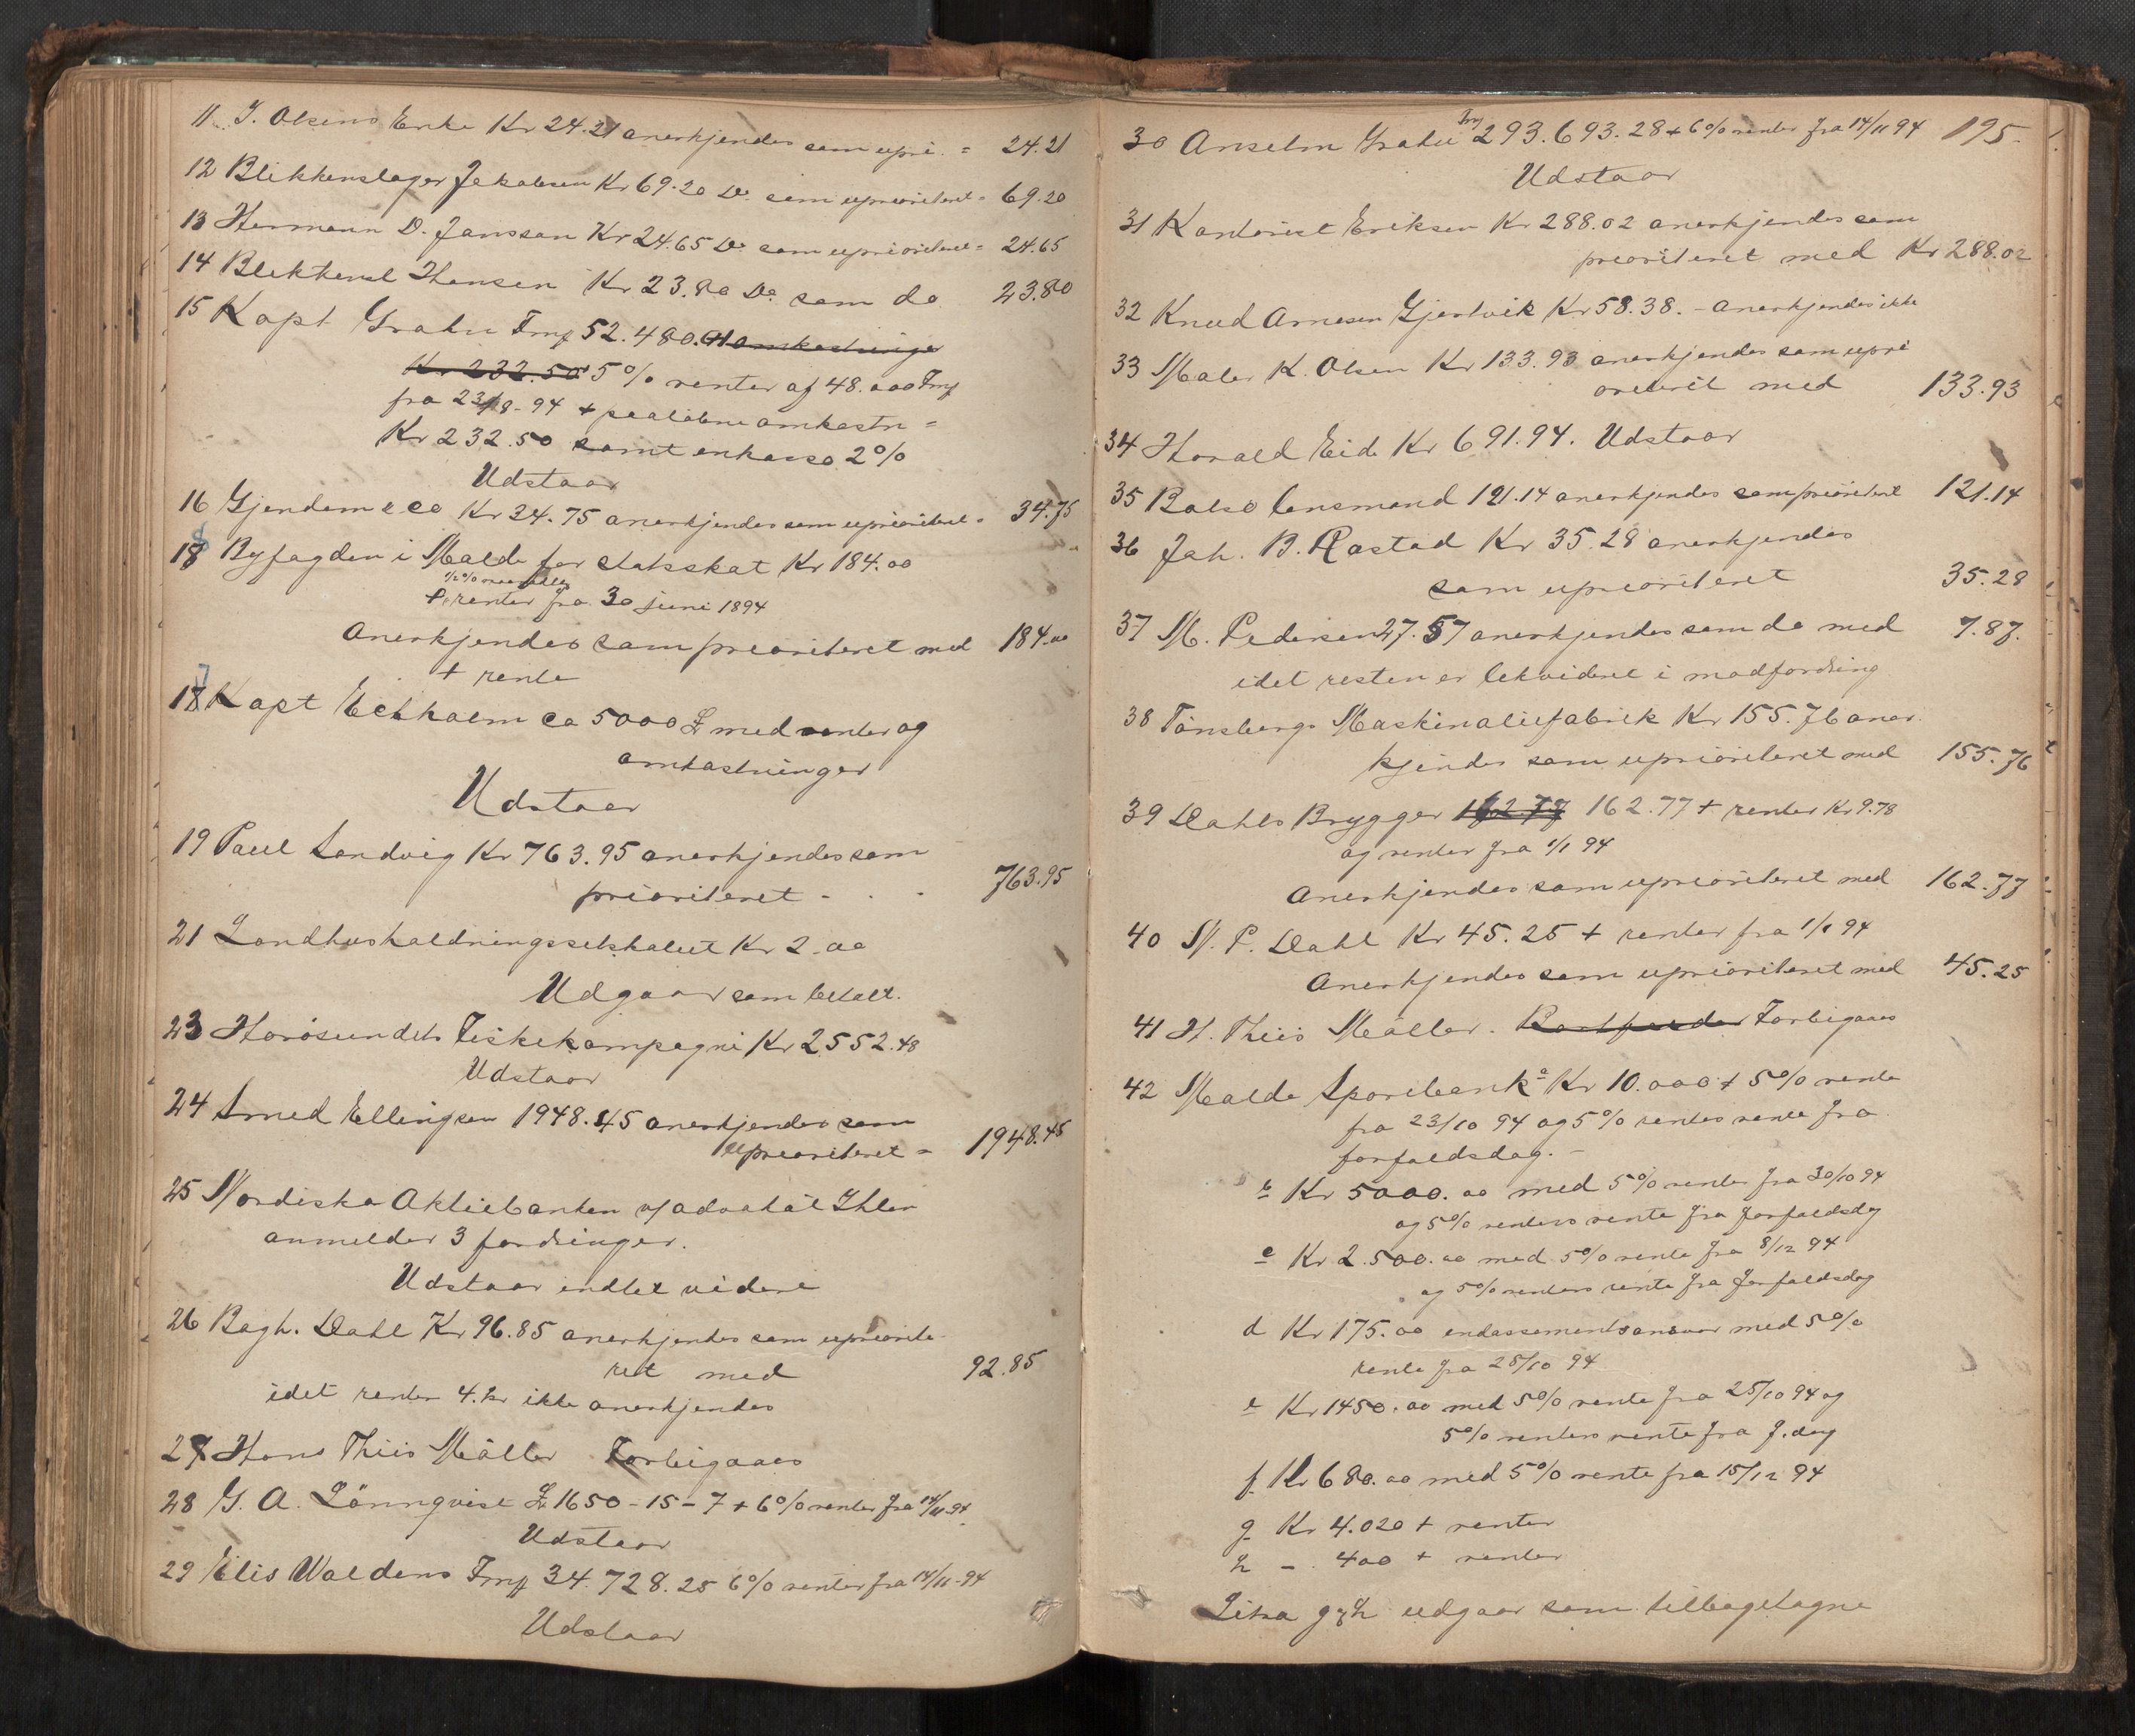 11 I. Olsens Enke Kr 24.21 anerkjendes som upri. = 24.21
12 Blikkenslager Jakobsen Kr 69.20 Do. som uprioriteret = 69.20
13 Hermann D. Janssen Kr 24.65 Do som uprioriteret = 24.65
14 Hansen Kr 23.80 Do. som do 23.80
15 Kapt Grahn Fmf 52.480. omkostninger
Kr 232.50 5% renter af 48.000 Fmf
fra 23/8-94 + paaløbne omkostn =
Kr 232.50 samt inkasso 2%
Udstaar
16 Gjendem & Co Kr 34.75 anerkjendes som uprioriteret = 34.75
18 Byfogden i Molde for Statsskat Kr 184.00
renter fra 30 juni 1894
Anerkjendes som prioriteret med 184.00
+ rente
17 Kapt Eckholm ca 5000 £ med renter og
omkostninger
Udstaar
19 Paul Sandvig Kr 763.95 anerkjendes som
prioriteret - . - 763.95
21 Landhusholdningsselskabet Kr 2.00
Udgaar som betalt.
23 Harøsundets Fiskekompagni Kr 2552.48
Udstaar
24 Smed Ellingsen 1948.45 anerkjendes som
uprioriteret = 1948.45
25 Nordiska Aktiebanken v/ advokat Ihlen
anmelder 3 fordringer.
Udstaar indtil videre
26 Bagh. Dahl Kr 96.85 anerkjendes som upriorite-
ret med 92.85
idet renter 4. kr ikke anerkjendes
27 Hans Thiis Møller Forbigaaes
28 G. A. Lönnqvist £ 1650-15-7 + 6% renter fra 14/11-94
Udstaar
29 Elis Waldens Fmf 34.728.25 6% renter fra 14/11-94
Udstaar
30 Anselm Grahn Fmf 293.693.28 + 6% renter fra 14/11 94 195.
Udstaar
31 Kontorist Eriksen Kr 288.02 anerkjendes som
prioriteret med Kr 288.02
32 Knud Arnesen Gjertvik Kr 58.38. - anerkjendes ikke
33 Maler K. Olsen Kr 133.93 anerkjendes som upri
oriteret med 133.93
34 Harald Eide Kr 691.94. Udstaar
35 Bolsø lensmand 121.14 anerkjendes som prioriteret 121.14
36 Joh. B. Rostad Kr 35.28 anerkjendes
som uprioriteret 35.28
37 M. Pedersen 27.57 anerkjendes som do med 7.87.
idet resten er likvideret i modfordring
38 Tønsbergs Maskinoliefabrik Kr 155.76 aner
kjendes som uprioriteret med 155.76
39 Dahls Brygger 162.77 162.77 + renter Kr 9.78
og renter fra 1/1 94
Anerkjendes som uprioriteret med 162.77
40 M. P. Dahl Kr 45.25 + renter fra 1/1 94
Anerkjendes som uprioriteret med 45.25
41 H. Thiis Møller. Bortfalder Forbigaaes
42 Molde Sparebank a Kr 10.000 + 5% rente
fra 23/10 94 og 5% renters rente fra
forfaldsdag. -
b Kr 5000.00 med 5% renter fra 30/10 94
og 5% renters rente fra forfaldsdag
c Kr 2.500.00 med 5% rente fra 8/12 94
og 5% renters rente fra forfaldsdag
d Kr 175.00 endossementsansvar med 5%
rente fra 25/10 94
e Kr 1450.00 med 5% rente fra 25/10 94 og
5% renters rente fra f.dag
f Kr 680.00 med 5% rente fra 15/12 94
g Kr 4.020 + renter
h - 400 + renter
Litra g & h udgaar som tilbagetagne